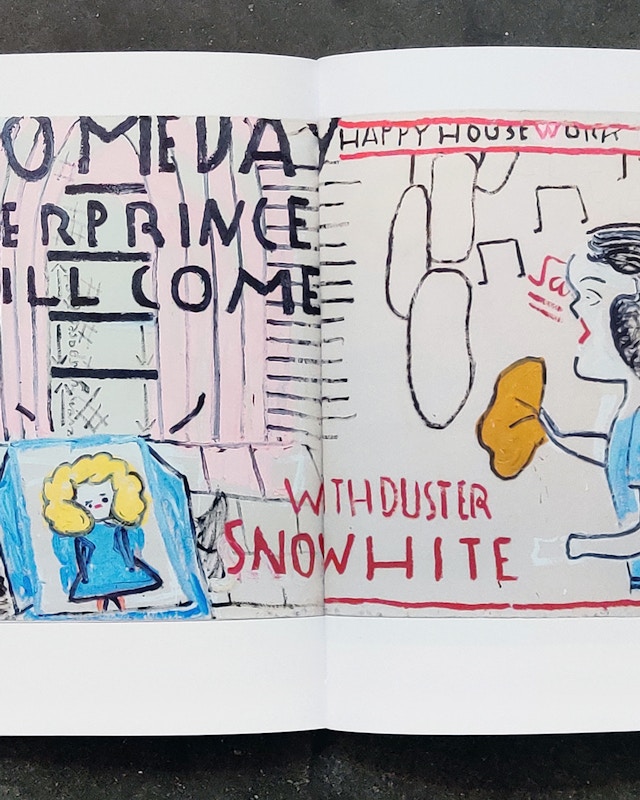 OMEDAY
ERPRINCE
ILL COME
HAPPY HOUSEWORK
WTHDUSTER
SNOWHITE